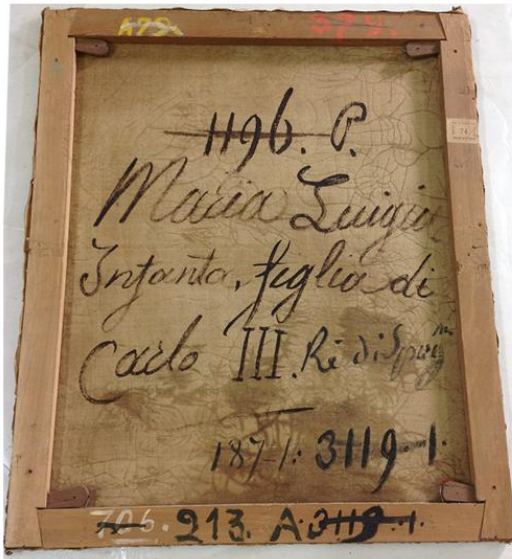 679. 379.
1196. P.
74
Maria Luigia
Infanta, figlia di
Carlo III. Rè di Spag.na
1871: 3119-1.
706. 213. A 3119-1.